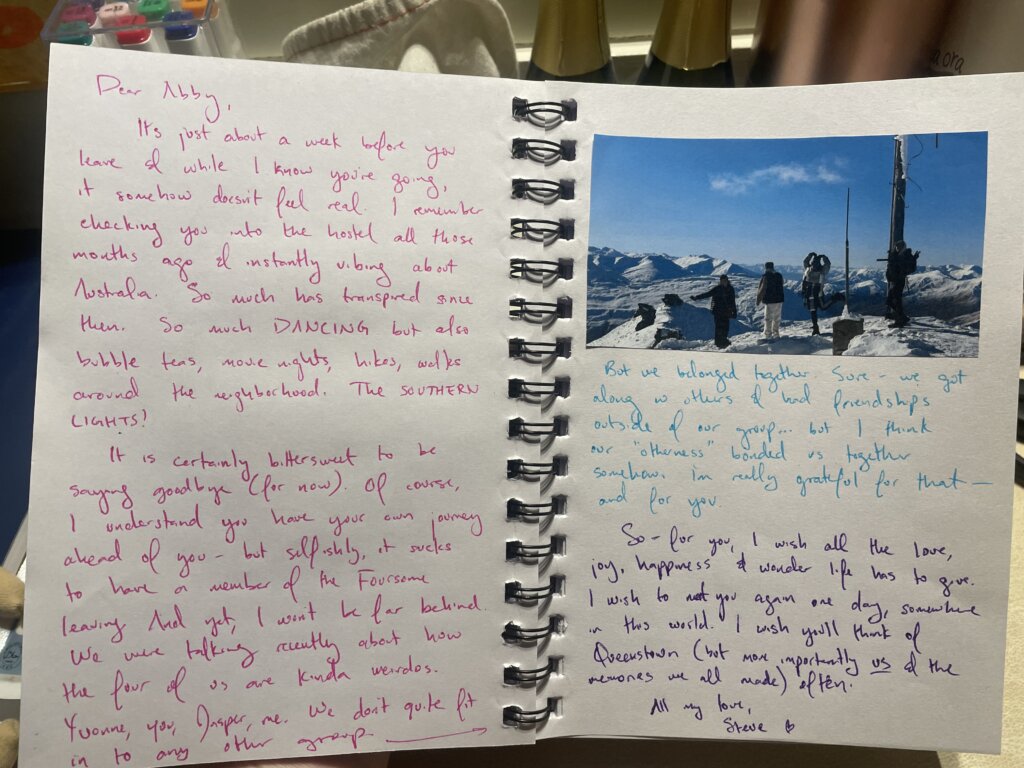 Dear Abby,
It's just about a week before you
leave & while I know you're going,
it somehow doesn't feel real. I remember
checking you into the hostel all those
months ago & instantly vibing about
Australia. So much has transpired since
then. So much DANCING but also
bubble teas, movie nights, hikes, walks
around the neighborhood. THE SOUTHERN
LIGHTS!
It is certainly bittersweet to be
saying goodbye (for now). Of course,
I understand you have your own journey
ahead of you - but selfishly, it sucks
to have a member of the Foursome
leaving. And yet, I won't be far behind.
We were talking recently about how
the four of us are kinda weirdos.
Yvonne, you, Jasper, me. We don't quite fit
in to any other group
But we belonged together. Sure - we got
along w others & had friendships
outside of our group... but I think
our "otherness" bonded us together
somehow. I'm really grateful for that -
and for you.
So - for you, I wish all the love,
joy, happiness & wonder life has to give.
I wish to meet you again one day, somewhere
in this world. I wish you'll think of
Queenstown (but more importantly us & the
memories we all made) often.
All my love,
Steve
aora